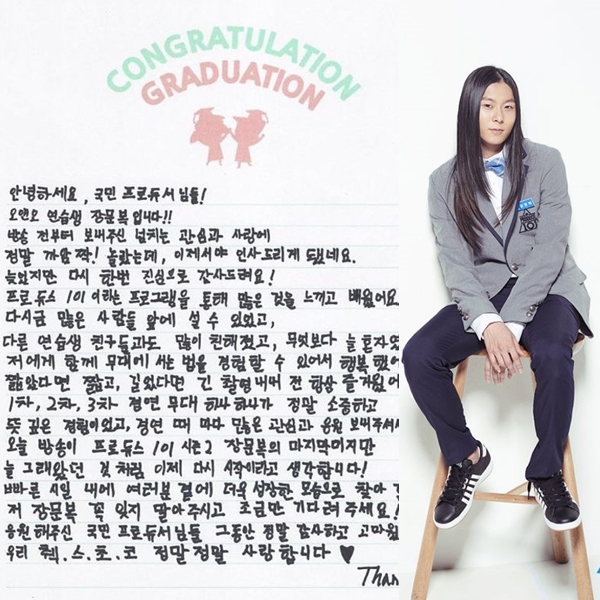 CONGRATULATION
GRADUATION
안녕하세요, 국민 프로듀서님들!
오앤오 연습생 장문복입니다!!
방송 전부터 보내주신 넘치는 관심과 사랑에
정말 깜짝! 놀랐는데, 이제서야 인사드리게 됐네요.
늦었지만 다시 한번 진심으로 감사드려요!
프로듀스 101 이라는 프로그램을 통해 많은 것을 느끼고 배웠어요
다시금 많은 사람들 앞에 설 수 있었고,
다른 연습생 친구들과도 많이 친해졌고, 무엇보다 늘 혼자였
저에게 함께 무대에 서는 법을 경험할 수 있어서 행복했어
짧았다면 짧고, 길었다면 긴 촬영내내 전 항상 즐거웠어
1차, 2차, 3차 경연 무대 하나하나가 정말 소중하고
뜻 깊은 경험이었고, 경연 때 마다 많은 관심과 응원 보내주셔서
오늘 방송이 프로듀스 101 시즌2 장문복의 마지막이지만
늘 그래왔던 것 처럼 이제 다시 시작이라고 생각합니다!
빠른 시일 내에 여러분 곁에 더욱 성장한 모습으로 찾아
저 장문복 꼭 잊지 말아주시고 조금만 기다려주세요!
응원해주신 국민 프로듀서님들 그동안 정말 감사하고 고마웠
우리 췍.스.초.코 정말정말 사랑합니다 ♥
Than